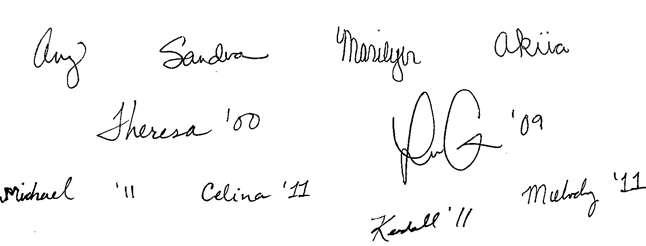 Amy Sandra Marilyn Akiia
Theresa '00 '09
Michael '11 Celina '11 Melody '11
Kendall '11